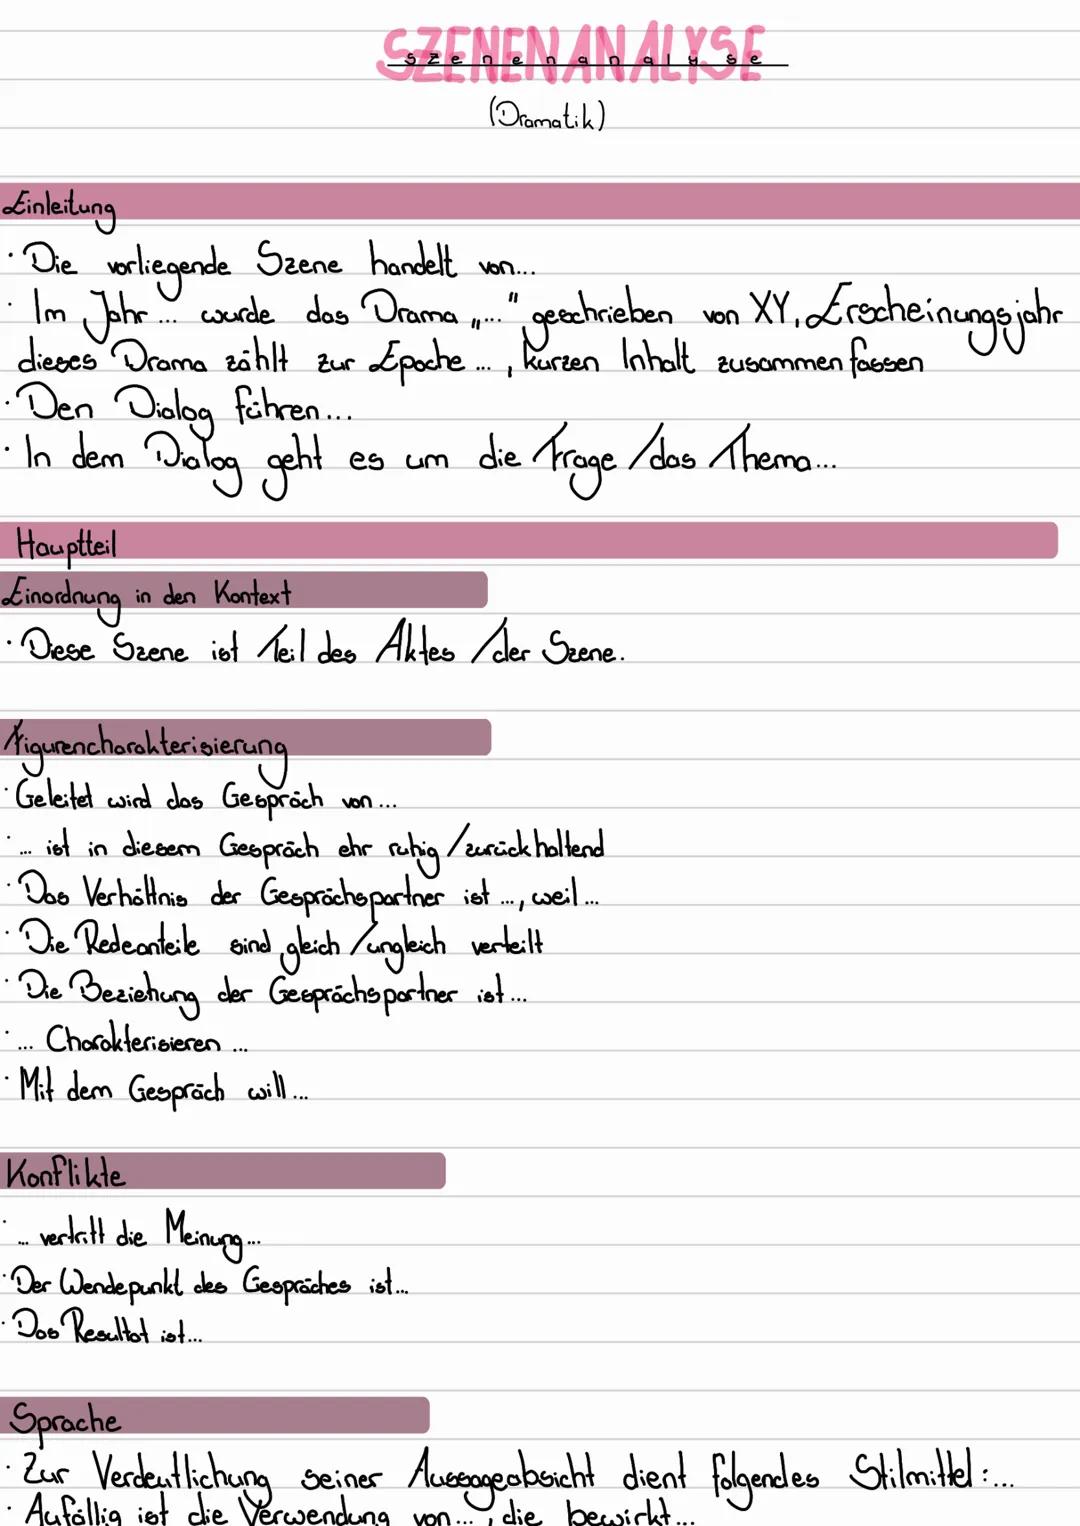 SZENENANALYSE
Szenenanalyse
(Dramatik)
Einleitung
· Die vorliegende Szene handelt von...
· Im Jahr ... wurde das Drama „..." geschrieben von XY, Erscheinungsjahr
dieses Drama zählt zur Epoche ... , kurzen Inhalt zusammenfassen
· Den Dialog führen...
· In dem Dialog geht es um die Frage / das Thema...
Hauptteil
Einordnung in den Kontext
· Diese Szene ist Teil des Aktes / der Szene.
Figurencharakterisierung
· Geleitet wird das Gespräch von ...
· ... ist in diesem Gespräch ehr ruhig / zurückhaltend
· Das Verhältnis der Gesprächspartner ist ..., weil ...
· Die Redeanteile sind gleich / ungleich verteilt
· Die Beziehung der Gesprächspartner ist ...
· ... Charakterisieren ...
· Mit dem Gespräch will ...
Konflikte
· ... vertritt die Meinung ...
· Der Wendepunkt des Gespräches ist...
· Das Resultat ist...
Sprache
· Zur Verdeutlichung seiner Aussageabsicht dient folgendes Stilmittel: ...
· Aufällig ist die Verwendung von ... , die bewirkt ...